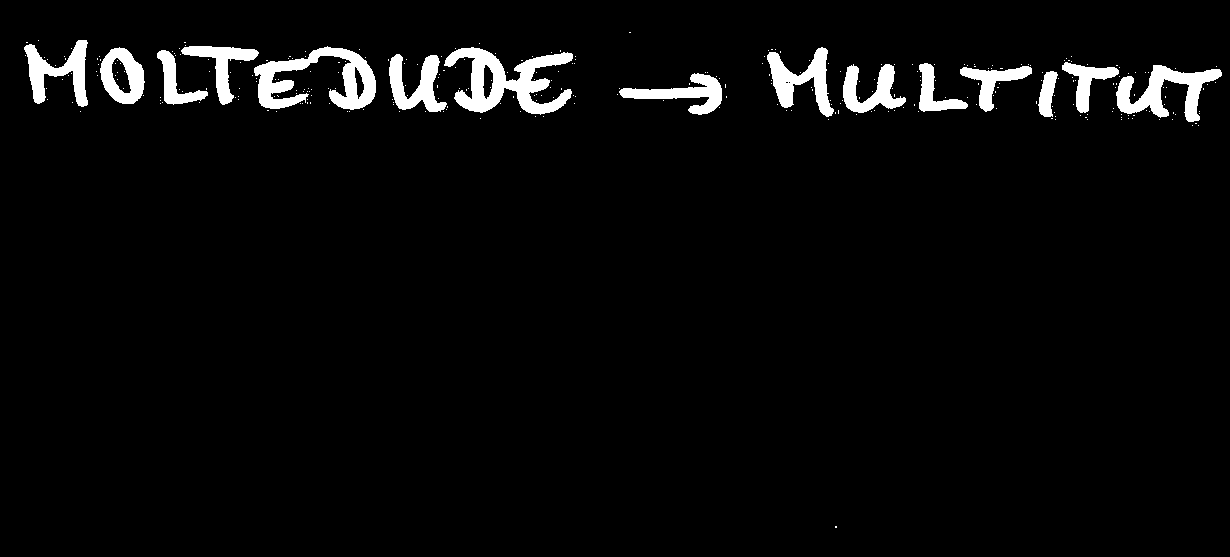 MOLTEDUDE → MULTITUT